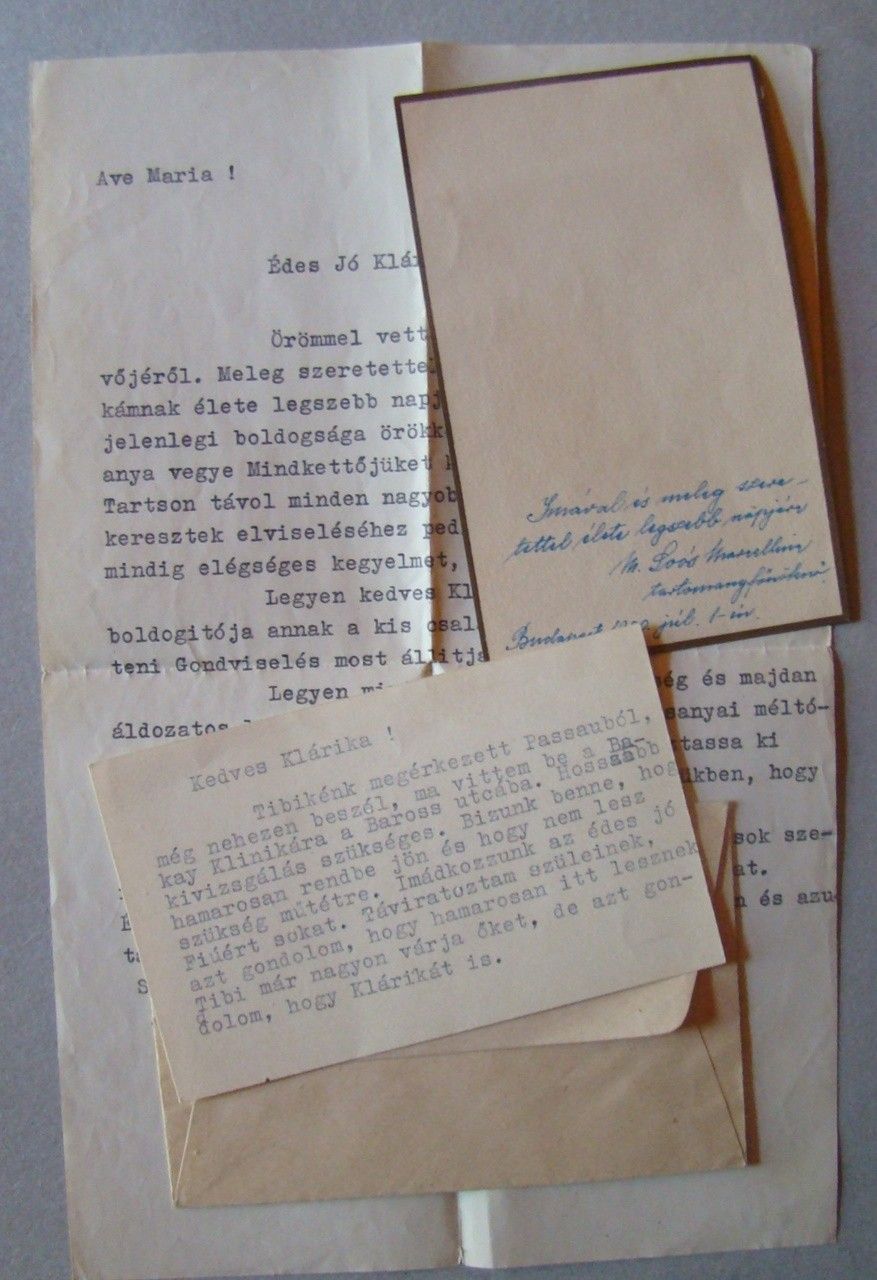 Ave Maria !
Édes Jó
Örömmel vett
vőjéről. Meleg
kámnak élete legszebb
jelenlegi boldogsága
anya vegye Mindkettőjüket
Tartson távol minden
keresztek elviseléséhez
mindig elégséges kegyelmet,
Legyen kedves
boldogitója annak a kis
teni Gondviselés most
Legyen
áldozatos
ség és majdan
sanyai méltó-
tassa ki
ükben, hogy
sok sze-
at.
n és azu
Imával és meleg szere-
tettel élete legszebb napjára
M. Soós Marcellin
tartományfőnöknő
Budapest júl. 1-én.
Kedves Klárika !
Tibikénk megérkezett Passauból,
még nehezen beszél, ma vittem be a Ba-
kay Klinikára a Baross utcába. Hosszabb
kivizsgálás szükséges. Bizunk benne, hog
hamarosan rendbe jön és hogy nem lesz
szükség műtétre. Imádkozzunk az édes jó
Fiúért sokat. Táviratoztam szüleinek,
azt gondolom, hogy hamarosan itt lesznek
Tibi már nagyon várja őket, de azt gon-
dolom, hogy Klárikát is.